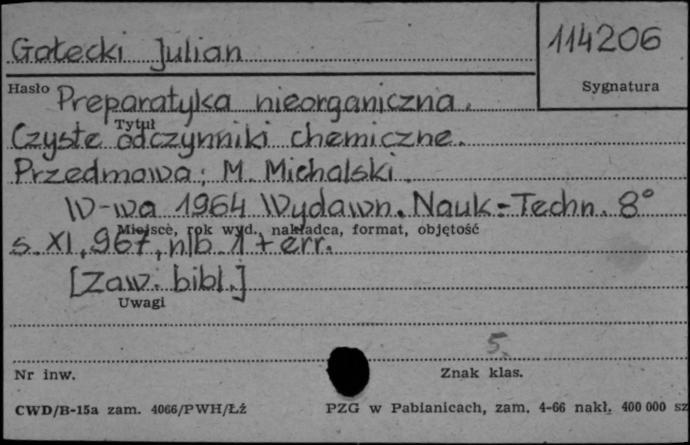 Gałecki Julian
114206
Hasło
Sygnatura
Preparatyka nieorganiczna.
Tytuł
Czyste odczynniki chemiczne.
Przedmowa: M. Michalski.
W-wa 1964 Wydawn. Nauk.-Techn. 8°
Miejsce, rok wyd., nakładca, format, objętość
s. XI, 967, nlb. 1 + err.
[Zaw. bibl.]
Uwagi
5.
Nr inw.
Znak klas.
CWD/B-15a zam. 4066/PWH/Łź
PZG w Pabianicach, zam. 4-66 nakł. 400 000 sz